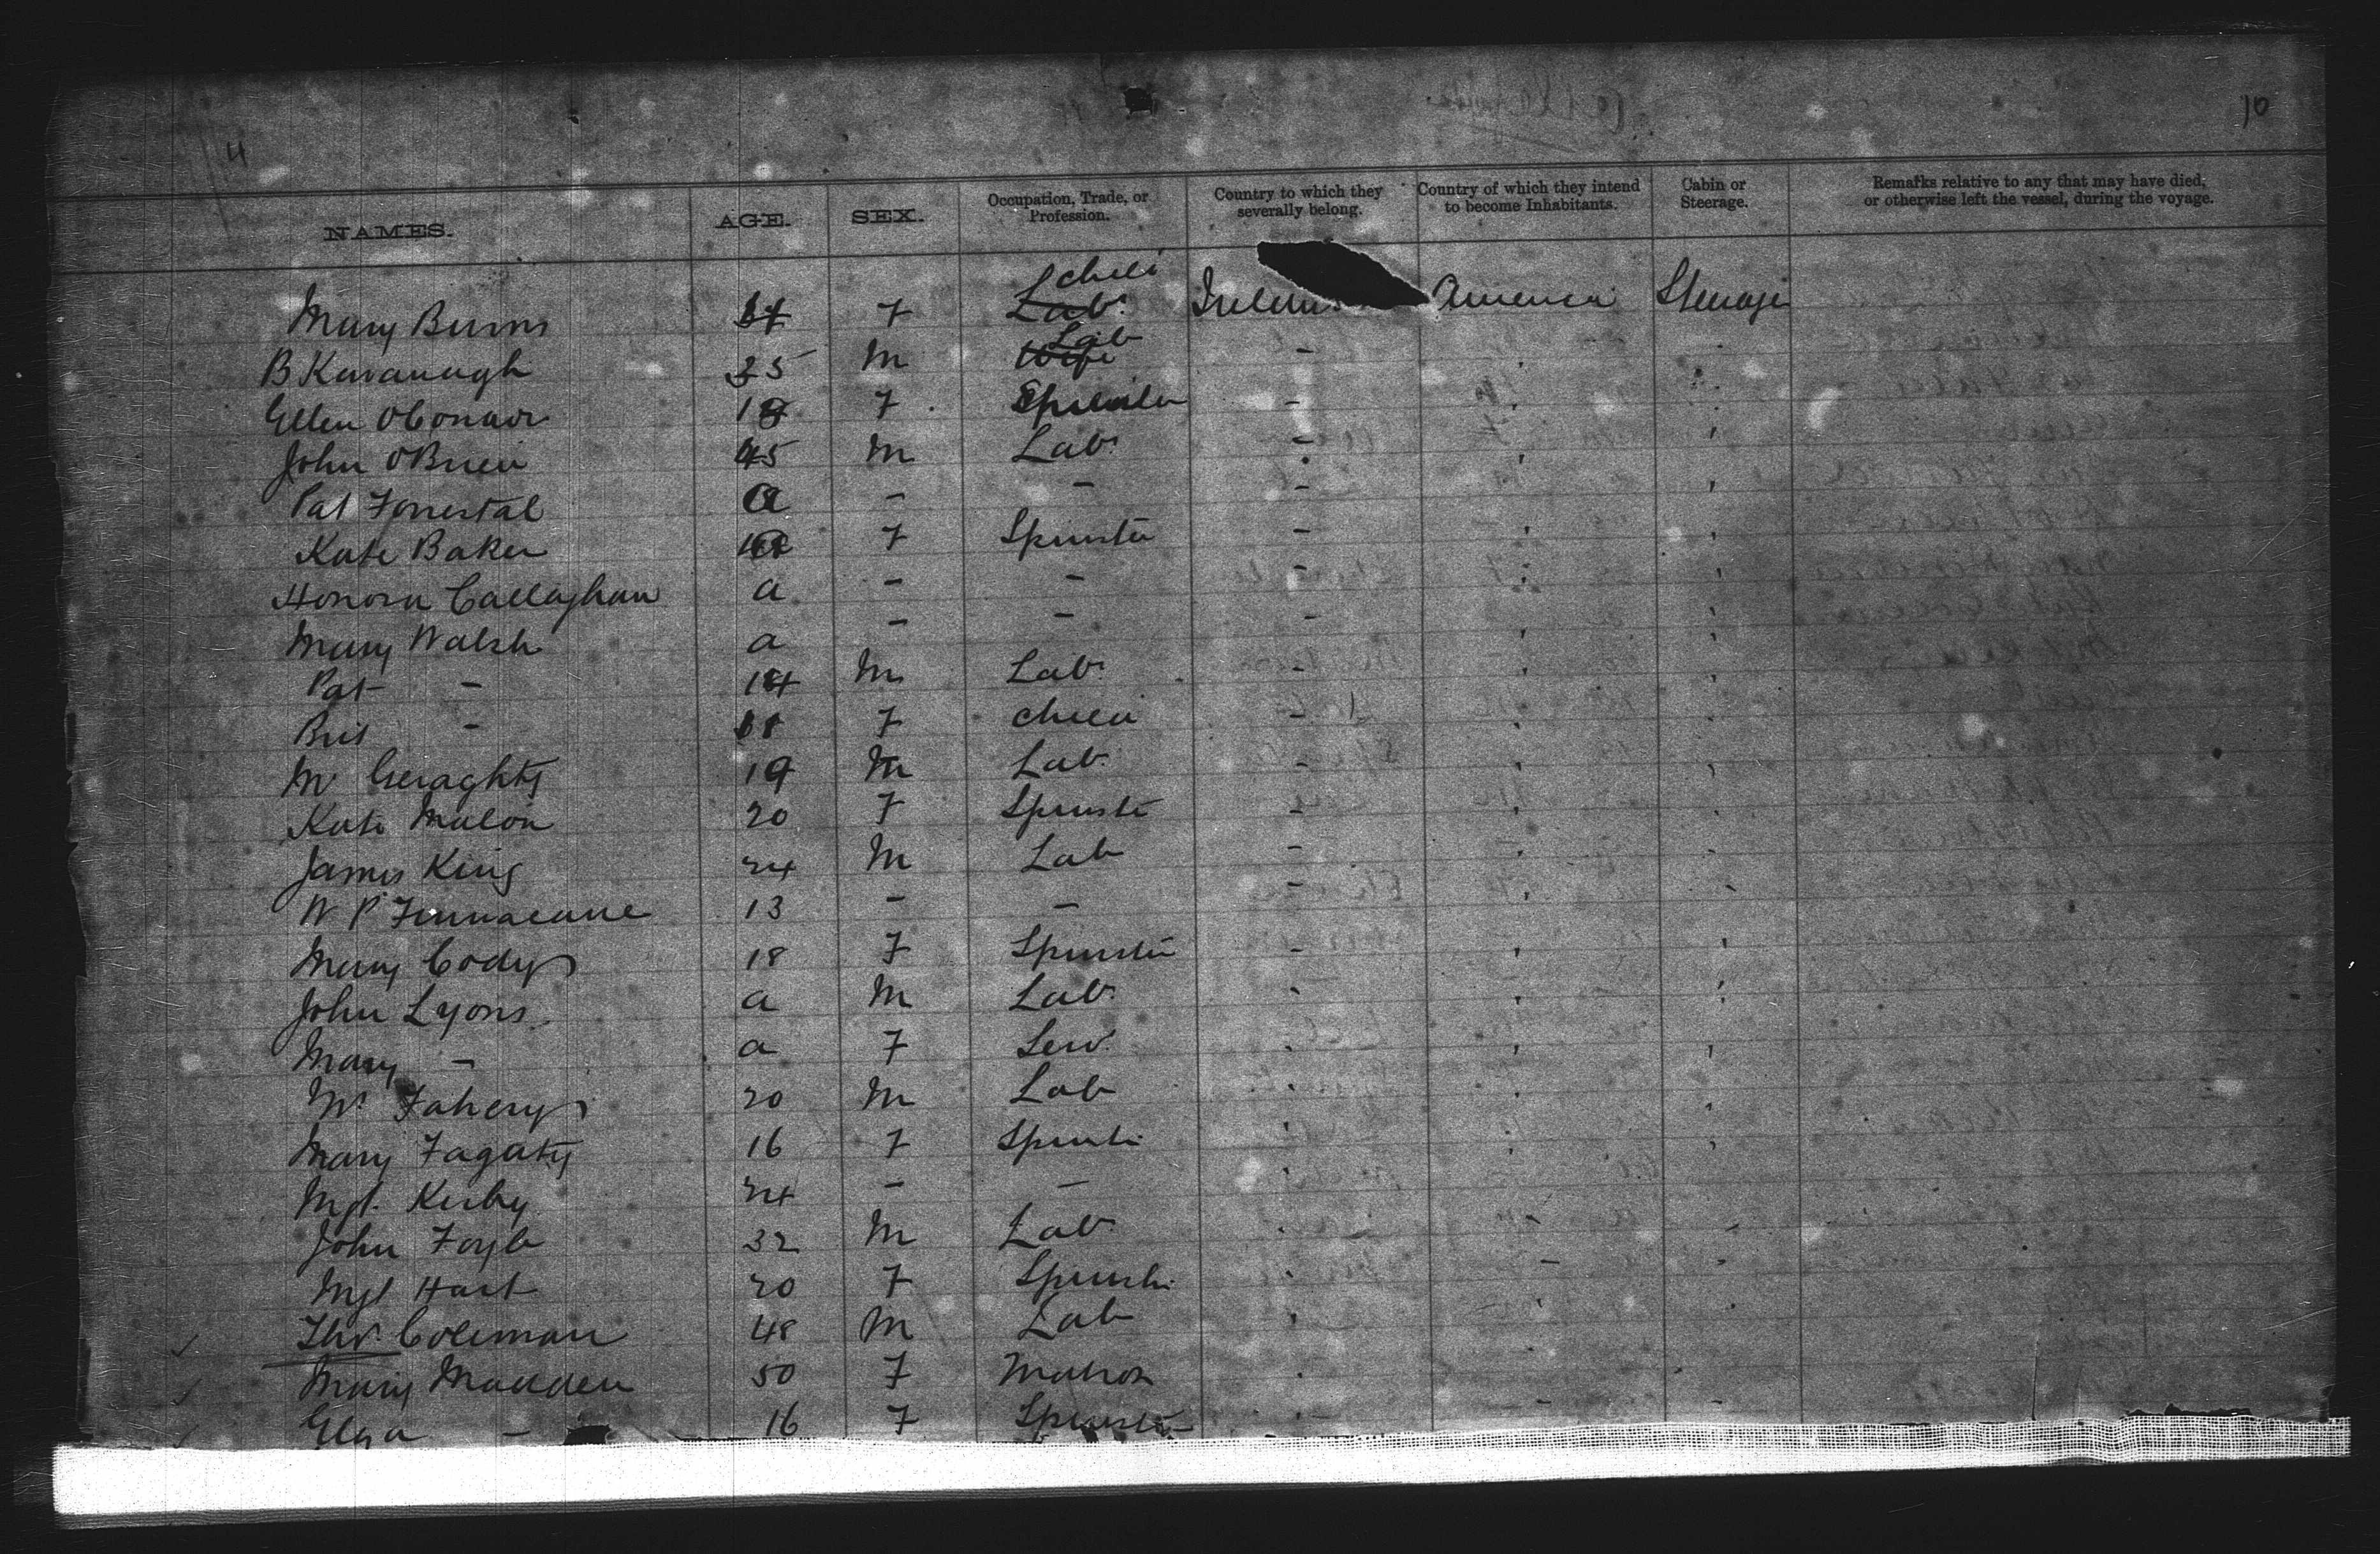 4
10
NAMES. AGE. SEX. Occupation, Trade, or Profession. Country to which they severally belong. Country of which they intend to become Inhabitants. Cabin or Steerage. Remarks relative to any that may have died, or otherwise left the vessel, during the voyage.
Mary Burns F Lab. America Steerage
B Kavanagh 35 M Lab -
Ellen O'Connor 18 F Spinster -
John O'Brien 45 M Lab. -
Pat Forrestal a - - -
Kate Baker F Spinster -
Honora Callaghan a - - -
Mary Walsh a - - -
Pat - 14 M Lab. -
Brid - F -
M Geraghty 19 M Lab. -
Kate Malon 20 F Spinster -
James King 24 M Lab -
W P Finnacane 13 - - -
Mary Cody 18 F Spinster -
John Lyons a M Lab.
Mary - a F Serv.
M. Fahery 20 M Lab
Mary Fagaty 16 F Spinster
Mgt. Kirby 24 - -
John Foyle 32 M Lab. - -
Mgt Hart 20 F Spinster - -
Thos. Coleman 48 M Lab
Mary Madden 50 F Matron
- 16 F Spinster - - -